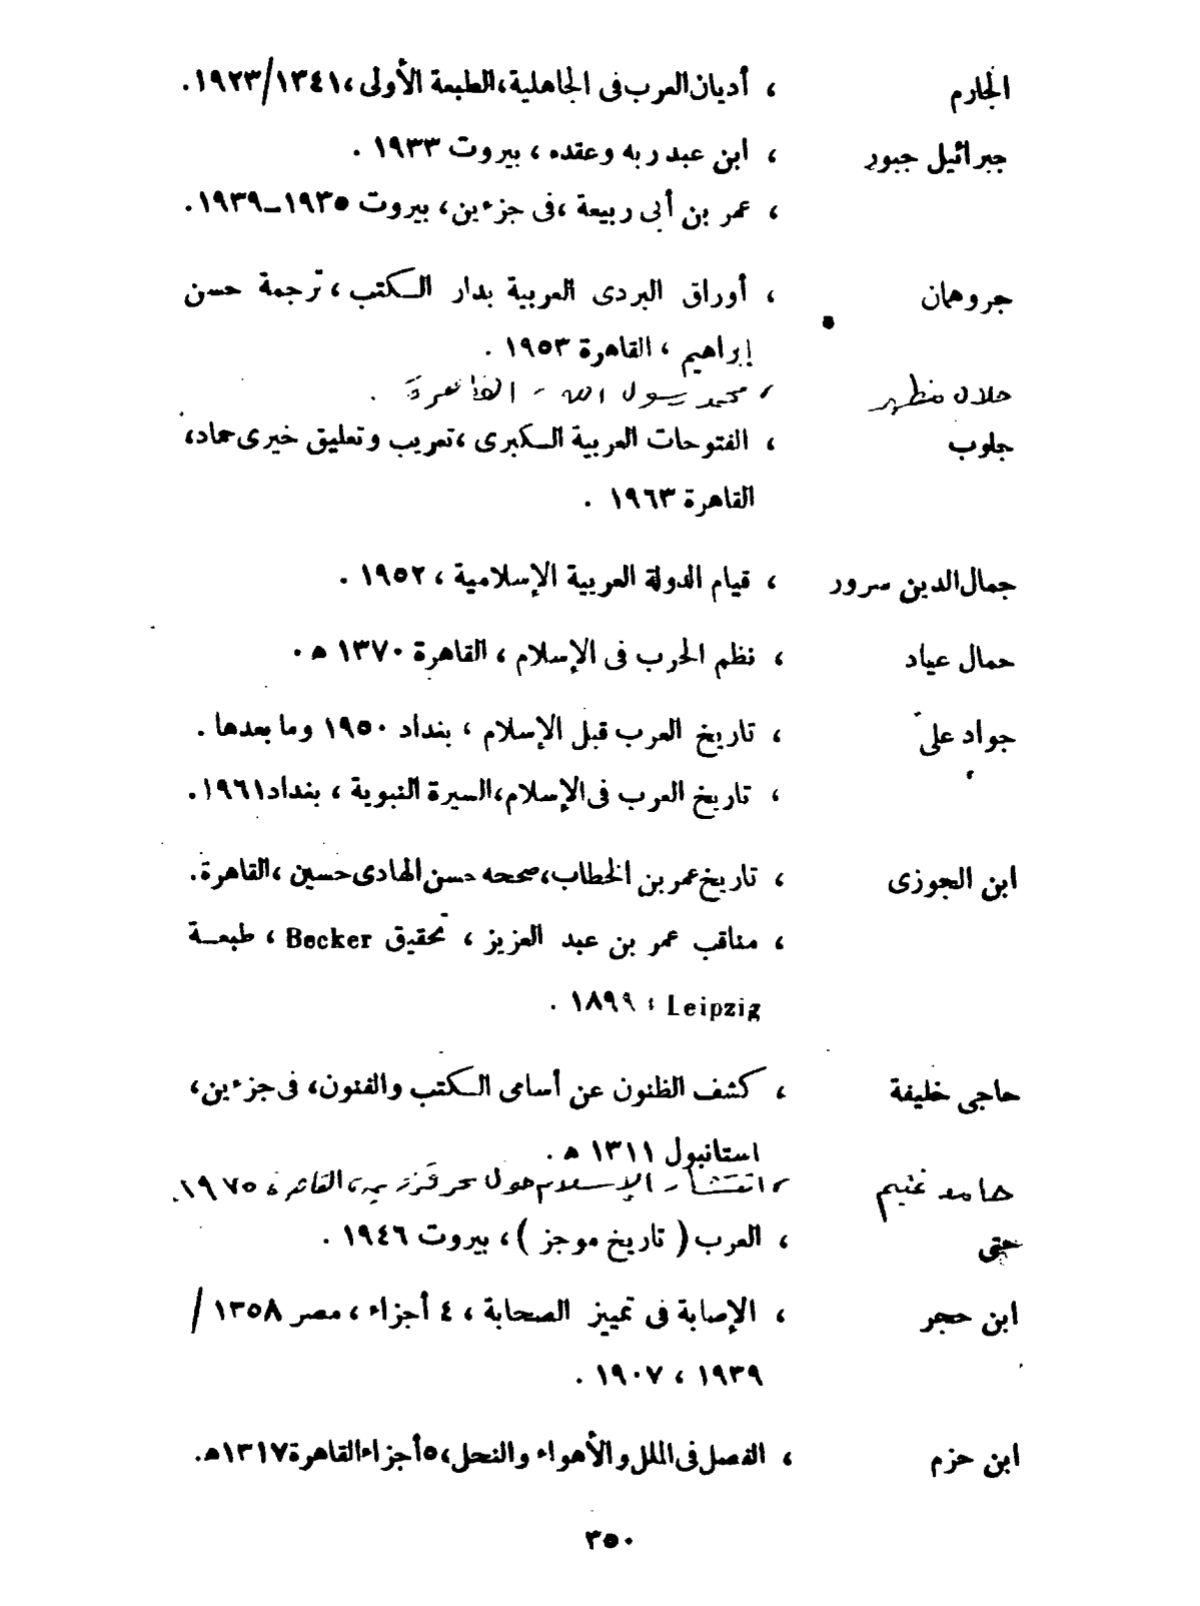 الجارم ، أديان العرب فى الجاهلية، الطبعة الأولى ، ١٣٤١/١٩٢٣.
جبرائيل جبور ، ابن عبد ربه وعقده ، بيروت ١٩٣٣ .
، عمر بن أبى ربيعة ، فى جزءين، بيروت ١٩٣٥–١٩٣٩.
جروهمان ، أوراق البردى العربية بدار الكتب ، ترجمة حسن
إبراهيم ، القاهرة ١٩٥٣ .
جلال مظهر ، محمد رسول الله ، القاهرة .
جلوب ، الفتوحات العربية الكبرى ، تعريب وتعليق خيرى حماد،
القاهرة ١٩٦٣ .
جمال الدين سرور ، قيام الدولة العربية الإسلامية ، ١٩٥٢ .
جمال عياد ، نظم الحرب فى الإسلام ، القاهرة ١٣٧٠ ھ .
جواد على ، تاريخ العرب قبل الإسلام ، بغداد ١٩٥٠ وما بعدها .
، تاريخ العرب فى الإسلام، السيرة النبوية ، بغداد ١٩٦١.
ابن الجوزى ، تاريخ عمر بن الخطاب، صححه حسن الهادى حسين ، القاهرة.
، مناقب عمر بن عبد العزيز ، تحقيق Becker ، طبعة
Leipzig ، ١٨٩٩ .
حاجى خليفة ، كشف الظنون عن أسامى الكتب والفنون، فى جزءين،
استانبول ١٣١١ ھ .
حامد غنيم ، انتشار الإسلام حول بحر قزوين، القاهرة، ١٩٧٥.
حتى ، العرب ( تاريخ موجز ) ، بيروت ١٩٤٦ .
ابن حجر ، الإصابة فى تمييز الصحابة ، ٤ أجزاء ، مصر ١٣٥٨ /
١٩٣٩ ، ١٩٠٧ .
ابن حزم ، الفصل فى الملل والأهواء والنحل، ٥ أجزاء القاهرة ١٣١٧ھ.
٣٥٠